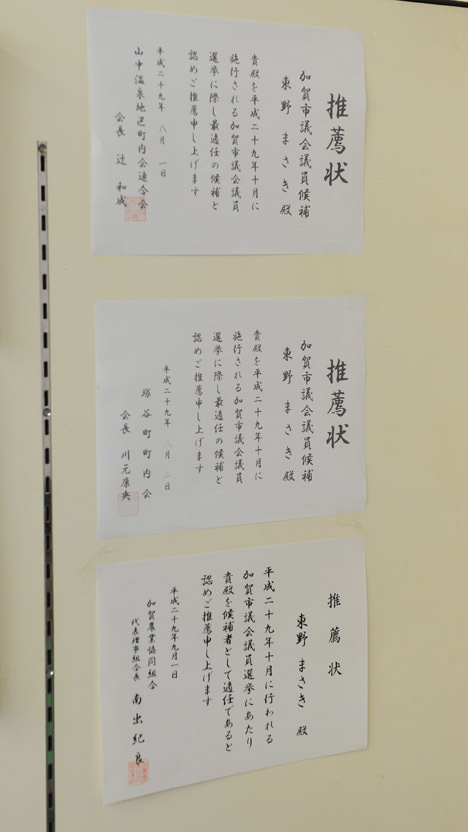 推薦状
加賀市議会議員候補
東野 まさき 殿
貴殿を平成二十九年十月に
施行される加賀市議会議員
選挙に際し最適任の候補と
認めご推薦申し上げます
平成二十九年 八月 一日
山中温泉地区町内会連合会
会長 辻 和成
推薦状
加賀市議会議員候補
東野 まさき 殿
貴殿を平成二十九年十月に
施行される加賀市議会議員
選挙に際し最適任の候補と
認めご推薦申し上げます
平成二十九年 八月 二日
塚谷町町内会
会長 川元康央
推薦状
東野 まさき 殿
平成二十九年十月に行われる
加賀市議会議員選挙にあたり
貴殿を候補者として適任であると
認めご推薦申し上げます
平成二十九年九月一日
加賀農業協同組合
代表理事組合長 南出紀良